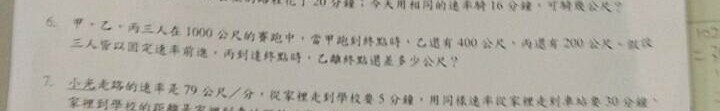 20 分鐘;今天用相同的速率騎 16 分鐘,可騎幾公尺?
6. 甲、乙、丙三人在 1000 公尺的賽跑中,當甲跑到終點時,乙還有 400 公尺,丙還有 200 公尺。假設
三人皆以固定速率前進,丙到達終點時,乙離終點還差多少公尺?
7. 小光走路的速率是 79 公尺/分,從家裡走到學校要 5 分鐘,用同樣速率從家裡走到車站要 30 分鐘,
家裡到學校的距離是家裡到